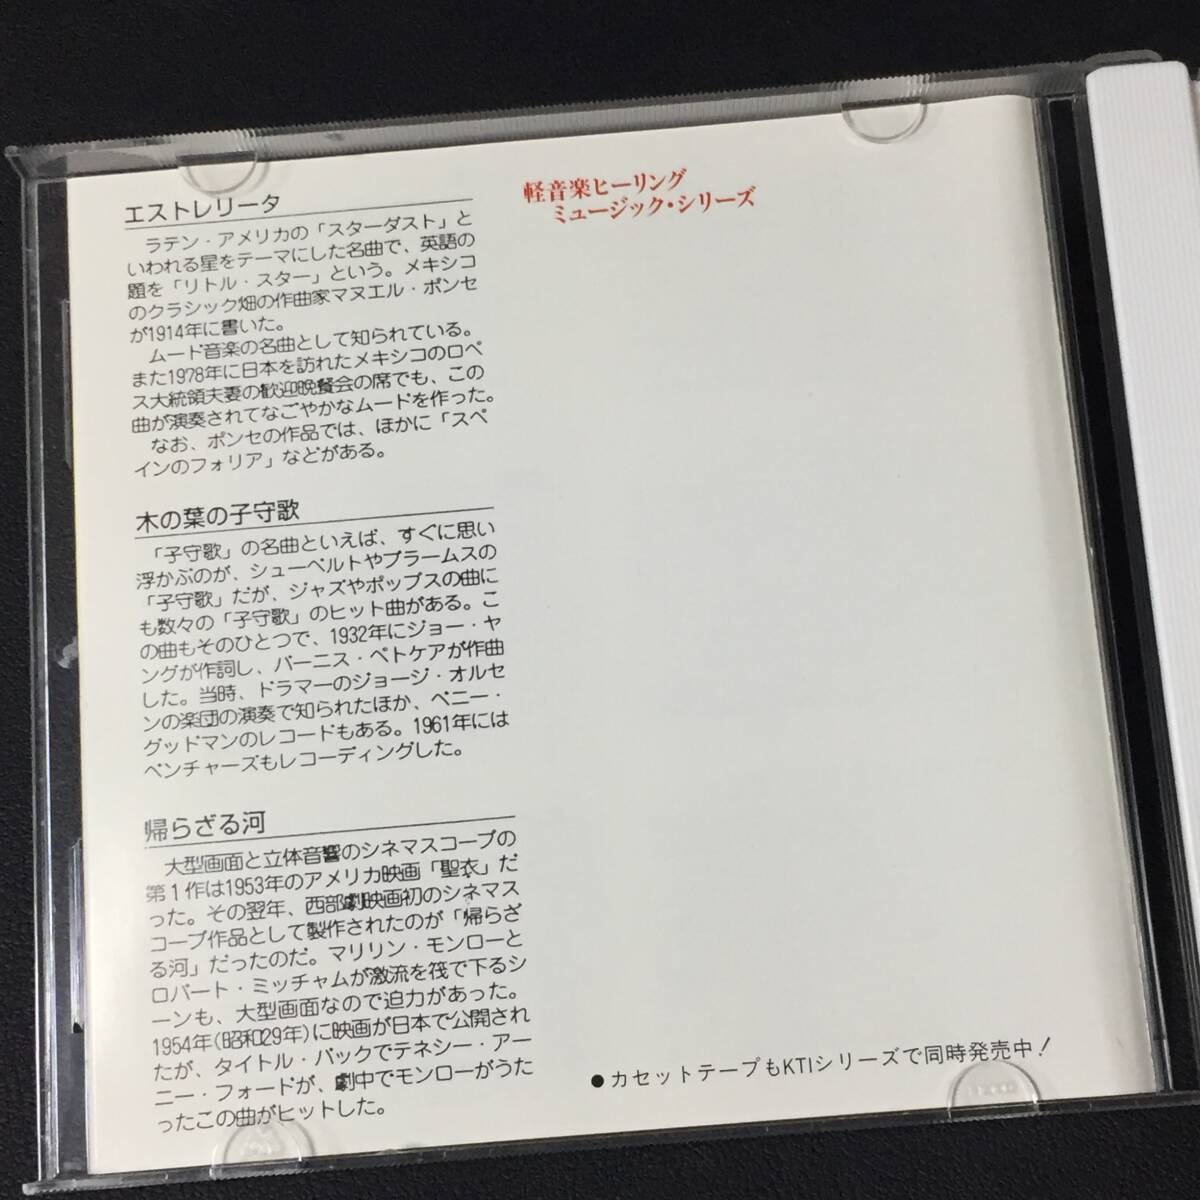 エストレリータ
ラテン・アメリカの「スターダスト」と
いわれる星をテーマにした名曲で、英語の
題を「リトル・スター」という。メキシコ
のクラシック畑の作曲家マヌエル・ポンセ
が1914年に書いた。
ムード音楽の名曲として知られている。
また1978年に日本を訪れたメキシコのロペ
ス大統領夫妻の歓迎晩餐会の席でも、この
曲が演奏されてなごやかなムードを作った。
なお、ポンセの作品では、ほかに「スペ
インのフォリア」などがある。
木の葉の子守歌
「子守歌」の名曲といえば、すぐに思い
浮かぶのが、シューベルトやブラームスの
「子守歌」だが、ジャズやポップスの曲に
も数々の「子守歌」のヒット曲がある。こ
の曲もそのひとつで、1932年にジョー・ヤ
ングが作詞し、バーニス・ペトケアが作曲
した。当時、ドラマーのジョージ・オルセ
ンの楽団の演奏で知られたほか、ベニー・
グッドマンのレコードもある。1961年には
ベンチャーズもレコーディングした。
帰らざる河
大型画面と立体音響のシネマスコープの
第1作は1953年のアメリカ映画「聖衣」だ
った。その翌年、西部劇映画初のシネマス
コープ作品として製作されたのが「帰らざ
る河」だったのだ。マリリン・モンローと
ロバート・ミッチャムが激流を筏で下るシ
ーンも、大型画面なので迫力があった。
1954年(昭和29年)に映画が日本で公開され
たが、タイトル・バックでテネシー・アー
ニー・フォードが、劇中でモンローがうた
ったこの曲がヒットした。
軽音楽ヒーリング
ミュージック・シリーズ
●カセットテープもKTIシリーズで同時発売中！